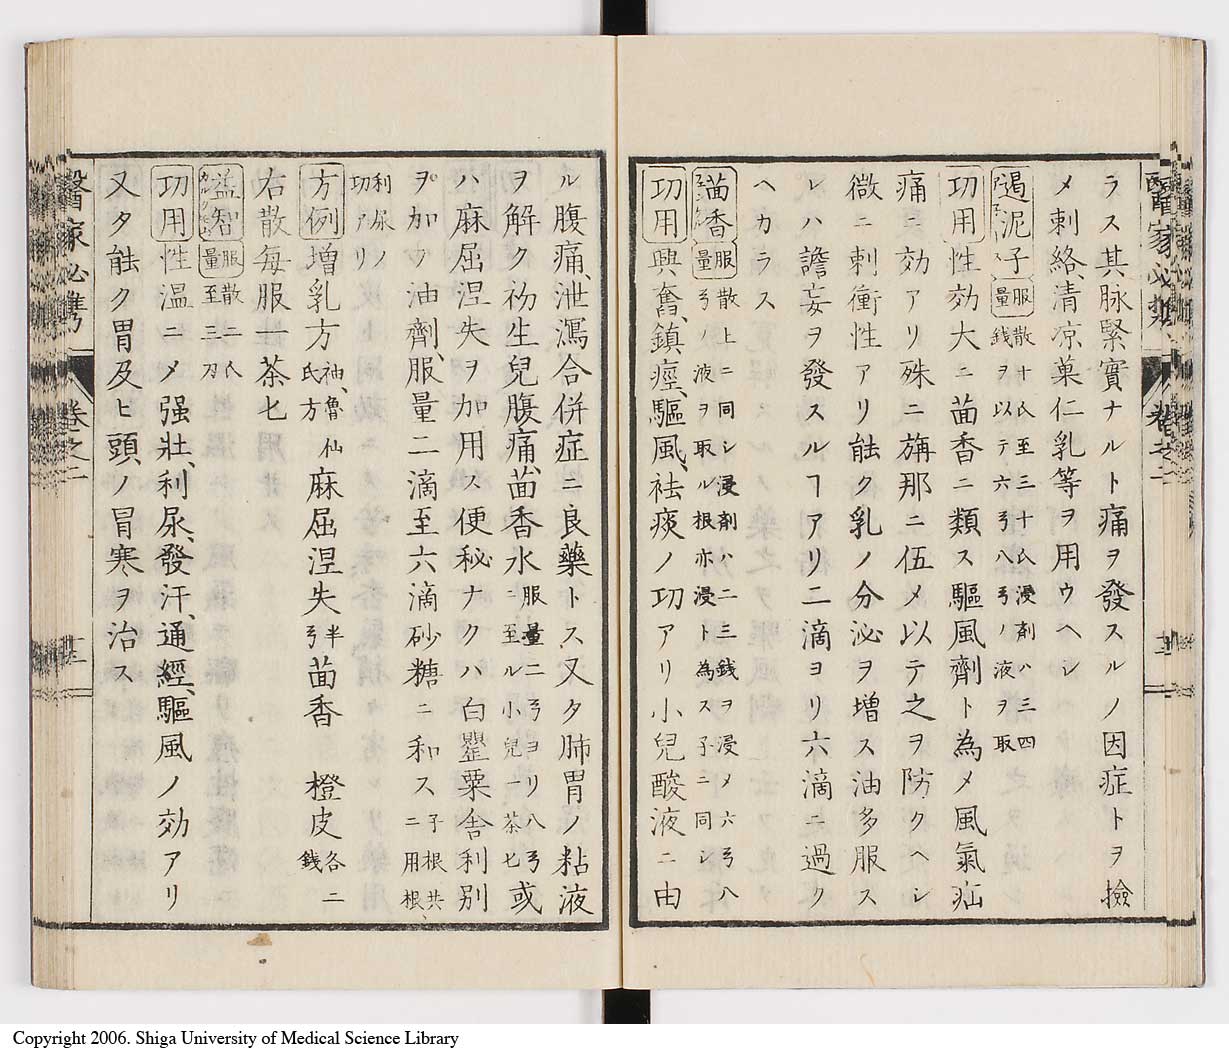 ラス其脉緊實ナルト痛ヲ發スルノ因症トヲ撿
メ刺絡、清凉菓仁乳等ヲ用ウヘシ
遏泥子 服量 散十氏至三十氏浸剤ハ三四
錢ヲ以テ六弓八弓ノ液ヲ取
功用 性効大ニ茴香ニ類ス驅風劑ト為メ風氣疝
痛ニ効アリ殊ニ旃那ニ伍メ以テ之ヲ防クヘシ
微ニ刺衝性アリ能ク乳ノ分泌ヲ増ス油多服ス
レハ譫妄ヲ發スルヿアリ二滴ヨリ六滴ニ過ク
ヘカラス
茴香 服量 散上ニ同シ浸剤ハ二三錢ヲ浸メ六弓八
弓ノ液ヲ取ル根亦浸ト為ス子ニ同シ
功用 興奮、鎮痙、驅風、祛痰ノ功アリ小兒酸液ニ由
醫家必携 卷之二
ル腹痛、泄瀉合併症ニ良藥トス又タ肺胃ノ粘液
ヲ解ク初生兒腹痛、茴香水 服量二弓ヨリ八弓
ニ至ル小兒一茶匕 或
ハ麻屈涅失ヲ加用ス便秘ナクハ白罌粟舎利別
ヲ加ウ油劑、服量二滴至六滴砂糖ニ和ス 子根共
ニ用根、
利尿ノ
功アリ
方例 増乳方 袖、魯仙
氏方 麻屈涅失 半弓 茴香 橙皮 各二
錢
右散毎服一茶匕
益智 服量 散二氏
至二刀
功用 性温ニメ强壯、利尿、發汗、通經、驅風ノ効アリ
又タ能ク胃及ヒ頭ノ冒寒ヲ治ス
醫家必携 卷之二 十二
Copyright 2006. Shiga University of Medical Science Library